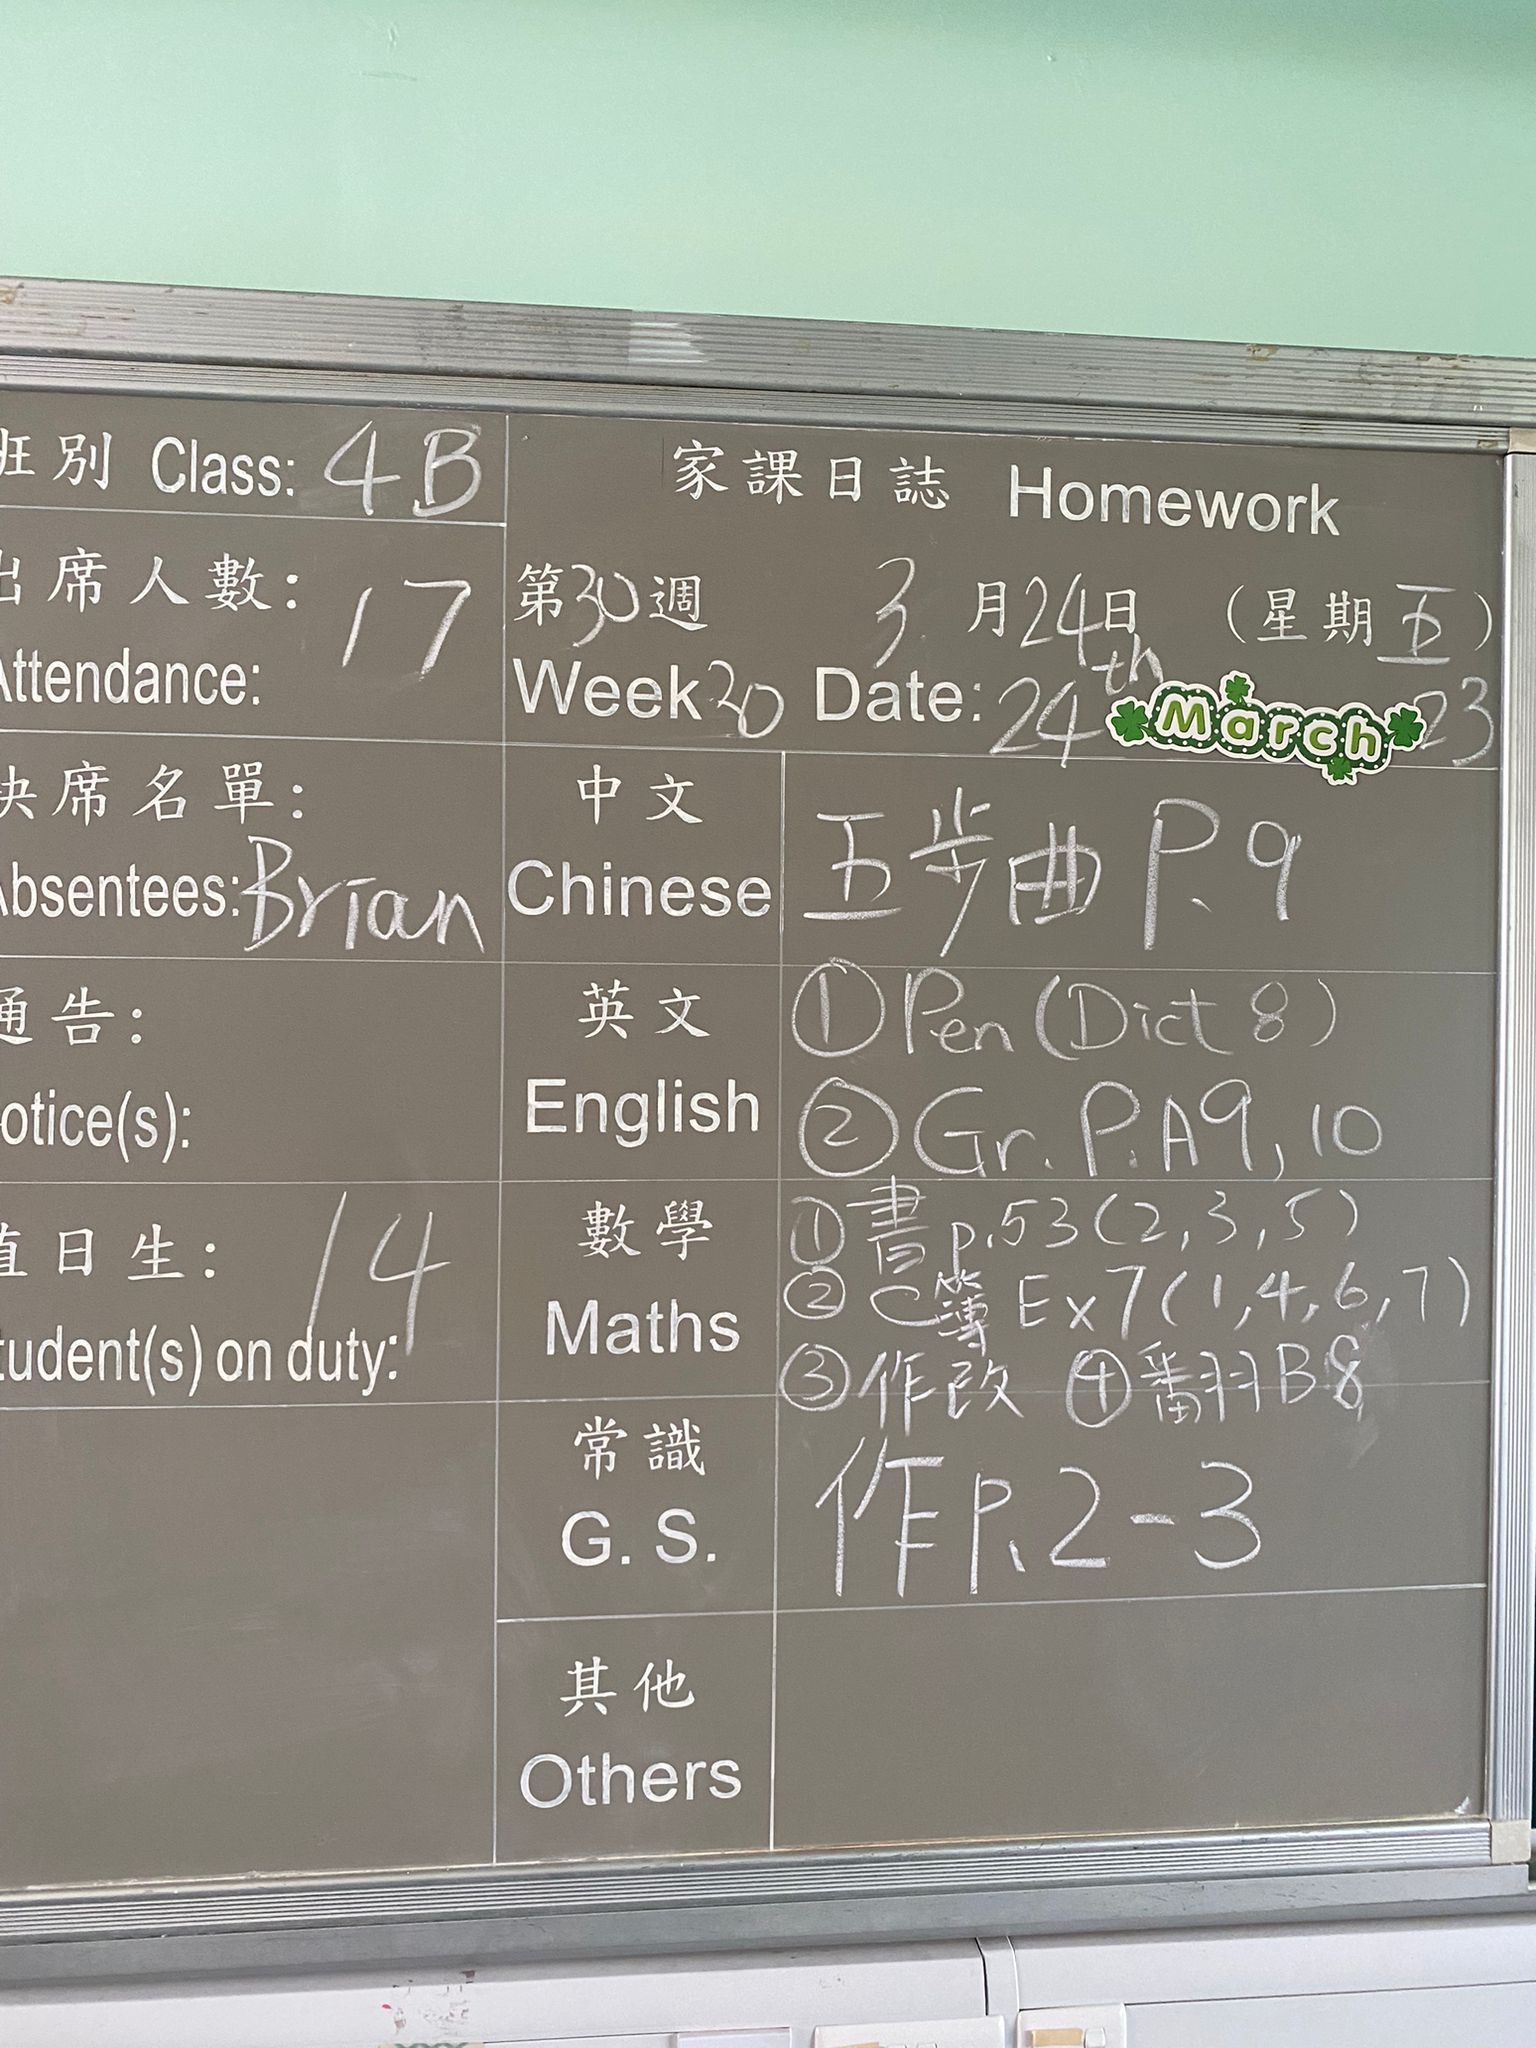 班別 Class: 4B
出席人數: 17
Attendance:
缺席名單:
Absentees: Brian
通告:
Notice(s):
值日生: 14
Student(s) on duty:
家課日誌 Homework
第30週 3月24日 (星期五)
Week30 Date: 24th March 23
中文
Chinese
五步曲 P.9
英文
English
① Pen (Dict 8)
② Gr. P.A9, 10
數學
Maths
① 書 p.53 (2, 3, 5)
② C簿 Ex7 (1, 4, 6, 7)
③ 作改 ④ 翻B8
常識
G. S.
作P.2-3
其他
Others